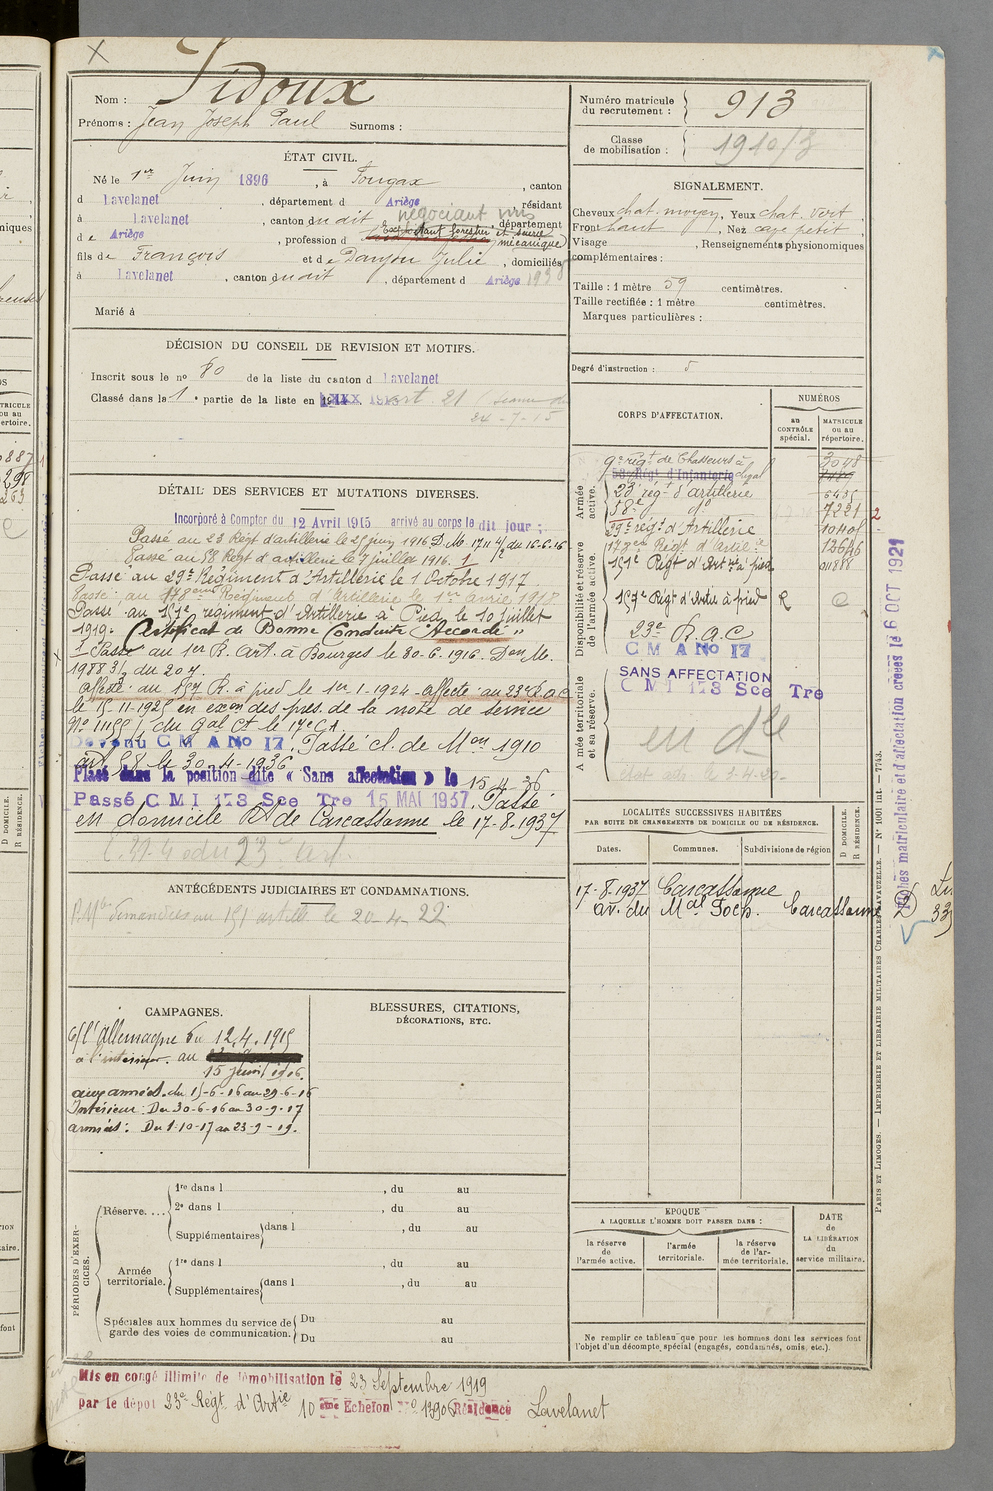 Nom : Pidoux
Prénoms : Jean Joseph Paul Surnoms :
Numéro matricule du recrutement : 913
Classe de mobilisation : 1910/3
ÉTAT CIVIL.
Né le 1er Juin 1896, à Fougax, canton
d Lavelanet, département d Ariège résidant
à Lavelanet, canton du dit négociant vins département
de Ariège, profession d Exploitant forestier et scierie mécanique
fils de François et de Danjou Julie, domiciliés
à Lavelanet, canton du dit, département d Ariège
Marié à
SIGNALEMENT.
Cheveux chat. moyen, Yeux chat. vert
Front haut, Nez
Visage , Renseignements physionomiques
complémentaires :
Taille : 1 mètre 59 centimètres.
Taille rectifiée : 1 mètre centimètres.
Marques particulières :
Degré d'instruction : 5
DÉCISION DU CONSEIL DE REVISION ET MOTIFS.
Inscrit sous le no 80 de la liste du canton d Lavelanet
Classé dans la 1e partie de la liste en 1915 art. 21 (séance du
24-7-15
DÉTAIL DES SERVICES ET MUTATIONS DIVERSES.
Incorporé à Compter du 12 Avril 1915 arrivé au corps le dit jour ;
Passé au 23 Régt d'artillerie le 25 juin 1916 D.M. 1711 4/2 du 16-6-16
Passé au 58 Régt d'artillerie le 7 juillet 1916. 1
Passé au 29e Régiment d'Artillerie le 1 Octobre 1917.
Passé au 178ème Régiment d'Artillerie le 1er avril 1918
Passé au 151e régiment d'Artillerie à Pied le 10 juillet
1919. Certificat de Bonne Conduite "Accordé"
1 Passé au 1er R. Art. à Bourges le 30-6-1916. Don M.
19883/3 du 20
Affecté au 157 R. à pied le 1er-1-1924 - affecté au 23e R.A.C
le 15-11-1925 en exon des pres. de la note de service
No 11155/1 du Gal Ct le 17e C.A.
Devenu C M A No 17. Passé cl. de Mon 1910
art. 58 le 30-4-1936
Placé dans la position dite « Sans affectation » le 15-4-36
Passé C M I 173 Sce Tre 15 MAI 1937. Passé
en domicile Rt de Carcassonne le 17-8-1937
CORPS D'AFFECTATION.
NUMÉROS
au CONTRÔLE spécial.
MATRICULE ou au répertoire.
Armée active.
9e régt de Chasseurs à cheval 3048
58e Régt d'Infanterie
23e régt d'artillerie 6435
58e do 7221
29e régt d'Artillerie
Disponibilité et réserve de l'armée active.
178em Régt d'Artil.ie
151e Régt d'Art.rie à pied
157e Régt d'Artie à pied R
23e R.A.C
C M A No 17
Armée territoriale et sa réserve.
SANS AFFECTATION
C M I 173 Sce Tre
en dlle
Fiches matriculaire et d'affectation créées le 6 OCT 1921
LOCALITÉS SUCCESSIVES HABITÉES
PAR SUITE DE CHANGEMENTS DE DOMICILE OU DE RÉSIDENCE.
Dates. Communes. Subdivisions de région
D DOMICILE.
R RÉSIDENCE.
17-8-1937 Carcassonne
av. du Mal Foch. Carcassonne D
ANTÉCÉDENTS JUDICIAIRES ET CONDAMNATIONS.
CAMPAGNES.
C/ l'Allemagne du 12.4.1915
à l'intérieur au
15 juin 1916.
aux armées. du 15-6-16 au 29-6-16
Intérieur : Du 30-6-16 au 30-9-17
armées : Du 1-10-17 au 23-9-19.
BLESSURES, CITATIONS,
DÉCORATIONS, ETC.
PÉRIODES D'EXERCICES.
Réserve....
1re dans l , du au
2e dans l , du au
Supplémentaires dans l , du au
Armée territoriale.
1re dans l , du au
Supplémentaires dans l , du au
Spéciales aux hommes du service de garde des voies de communication.
Du au
Du au
EPOQUE
A LAQUELLE L'HOMME DOIT PASSER DANS :
la réserve de l'armée active.
l'armée territoriale.
la réserve de l'armée territoriale.
DATE de LA LIBÉRATION du service militaire.
Ne remplir ce tableau que pour les hommes dont les services font
l'objet d'un décompte spécial (engagés, condamnés, omis, etc.).
PARIS ET LIMOGES. — IMPRIMERIE ET LIBRAIRIE MILITAIRES CHARLES-LAVAUZELLE. — No 1001 int. — 7743.
Mis en congé illimité de démobilisation le 23 Septembre 1919
par le dépot 23e Régt d'Artie 10 ème Echelon No 1390 Résidence Lavelanet